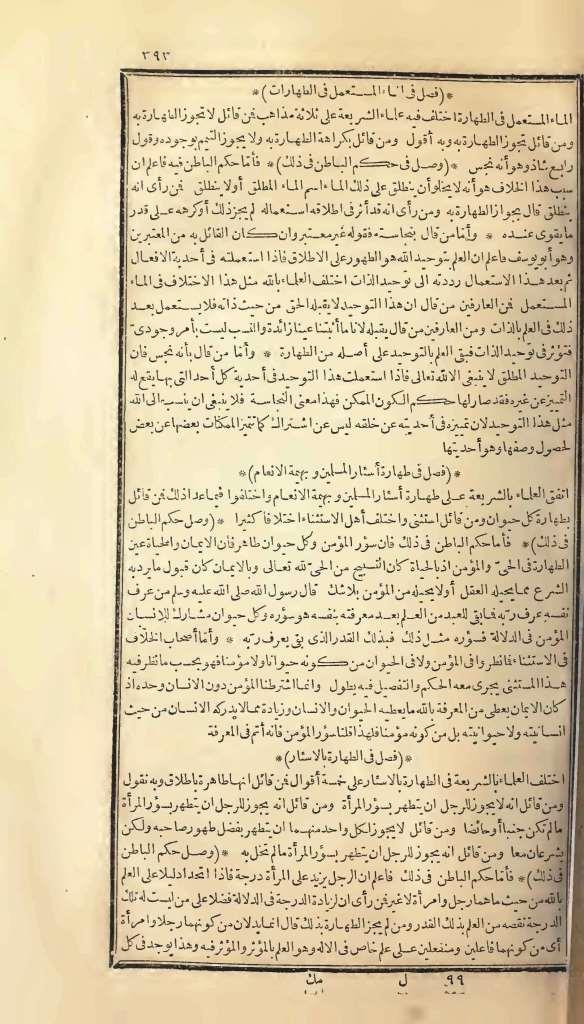 ٣٩٣
*(فصل فى الماء المستعمل فى الطهارات)*
الماء المستعمل فى الطهارة اختلف فيه علماء الشريعة على ثلاثة مذاهب فمن قائل لا تجوز الطهارة به
ومن قائل تجوز الطهارة به وبه أقول ومن قائل بكراهة الطهارة به ولا يجوز التيمم بوجوده وقول
رابع شاذ وهو أنه نجس *(وصل فى حكم الباطن فى ذلك)* فأما حكم الباطن فيه فاعلم ان
سبب هذا الخلاف هو أنه لا يخلو أن ينطلق على ذلك الماء اسم الماء المطلق أولا ينطلق فمن رأى انه
ينطلق قال بجواز الطهارة به ومن رأى انه قد أثر فى اطلاقه استعماله لم يجز ذلك أوكرهه على قدر
ما يقوى عنده * وأما من قال بنجاسته فقوله غير معتبر وان كان القائل به من المعتبرين
وهو أبو يوسف فاعلم ان العلم بتوحيد الله هو الطهور على الاطلاق فاذا استعملته فى أحدية الافعال
ثم بعد هذا الاستعمال رددته الى توحيد الذات اختلف العلماء بالله مثل هذا الاختلاف فى الماء
المستعمل فمن العارفين من قال ان هذا التوحيد لا يقبله الحق من حيث ذاته فلا يستعمل بعد
ذلك فى العلم بالذات ومن العارفين من قال يقبله لانا ما أثبتنا عينا زائدة والنسب ليست بأمر وجودىّ
فتؤثر فى توحيد الذات فبقى العلم بالتوحيد على أصله من الطهارة * وأما من قال بأنه نجس فان
التوحيد المطلق لا ينبغى الا لله تعالى فاذا استعملت هذا التوحيد فى أحدية كل أحد التى بها يقع له
التمييز عن غيره فقد صار لها حكم الكون الممكن فهذا معنى النجاسة فلا ينبغى ان ينسب الى الله
مثل هذا التوحيد لان تمييزه فى أحديته عن خلقه ليس عن اشتراك كما تتميز الممكنات بعضها عن بعض
لحصول وصفها وهو أحديتها
*(فصل فى طهارة أسئار المسلمين وبهيمة الانعام)*
اتفق العلماء بالشريعة على طهارة أسئار المسلمين وبهيمة الانعام واختلفوا فيما عدا ذلك فمن قائل
بطهارة كل حيوان ومن قائل استثنى واختلف أهل الاستثناء اختلافا كثيرا *(وصل حكم الباطن
فى ذلك)* فأما حكم الباطن فى ذلك فان سؤر المؤمن وكل حيوان طاهر فان الايمان والحياة عين
الطهارة فى الحىّ والمؤمن اذ بالحياة كان التسبيح من الحىّ لله تعالى وبالايمان كان قبول ما يرد به
الشرع مما يحيله العقل أولا يحيله من المؤمن بلاشك قال رسول الله صلى الله عليه وسلم من عرف
نفسه عرف ربه فما بقى للعبد من العلم بعد معرفته بنفسه هو سؤره وكل حيوان مشارك للانسان
المؤمن فى الدلالة فسؤره مثل ذلك فبذلك القدر الذى بقى يعرف ربه * وأما أصحاب الخلاف
فى الاستثناء فما نظروا فى المؤمن ولا فى الحيوان من كونه حيوانا ولا مؤمنا فهو بحسب ما نظر فيه
هذا المستثنى يجرى معه الحكم والتفصيل فيه يطول وانما اشترطنا المؤمن دون الانسان وحده اذ
كان الايمان يعطى من المعرفة بالله ما يعطيه الحيوان والانسان وزيادة مما لا يدركه الانسان من حيث
انسانيته ولا حيوانيته بل من كونه مؤمنا فلهذا قلنا سؤر المؤمن فانه أتم فى المعرفة
*(فصل فى الطهارة بالاسئار)*
اختلف العلماء بالشريعة فى الطهارة بالاسئار على خمسة أقوال فمن قائل انها طاهرة باطلاق وبه نقول
ومن قائل انه لا يجوز للرجل ان يتطهر بسؤر المرأة ومن قائل انه يجوز للرجل ان يتطهر بسؤر المرأة
ما لم تكن جنبا أو حائضا ومن قائل لا يجوز لكل واحد منهما ان يتطهر بفضل طهور صاحبه ولكن
يشرعان معا ومن قائل انه يجوز للرجل ان يتطهر بسؤر المرأة ما لم تخل به *(وصل حكم الباطن
فى ذلك)* فأما حكم الباطن فى ذلك فاعلم ان الرجل يزيد على المرأة درجة فاذا اتخذا دليلا على العلم
بالله من حيث ما هما رجل وامرأة لا غير فمن رأى ان لزيادة الدرجة فى الدلالة فضلا على من ليست له تلك
الدرجة نقصه من العلم بذلك القدر ومن لم يجز الطهارة بذلك قال انما يدلان من كونهما رجلا وامرأة
أى من كونهما فاعلين ومنفعلين على علم خاص فى الاله وهو العلم بالمؤثر والمؤثر فيه وهذا يوجد فى كل
٩٩ ل مك